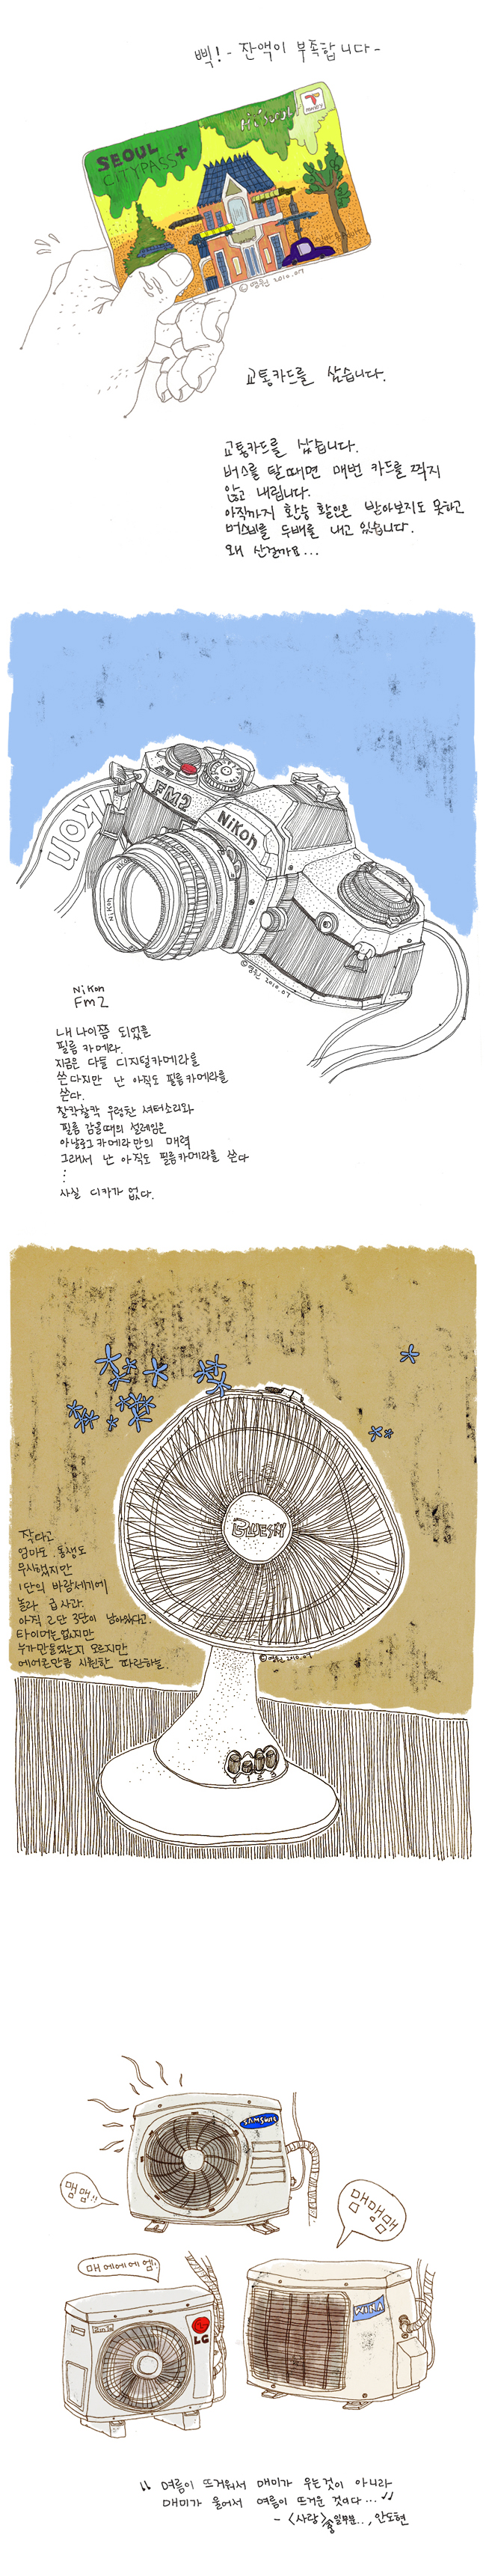 삑! - 잔액이 부족합니다 -
SEOUL
CITYPASS+
Hi Seoul
T
money
©영원 2010.07
교통카드를 샀습니다.
교통카드를 샀습니다.
버스를 탈때면 매번 카드를 찍지
않고 내립니다.
아직까지 환승 할인은 받아보지도 못하고
버스비를 두배를 내고 있습니다.
왜 산걸까요...
Nikon
FM2
Nikon
Nikon
©영원 2010.07
Nikon
Fm2
내 나이쯤 되었을
필름 카메라.
지금은 다들 디지털카메라를
쓴다지만 난 아직도 필름카메라를
쓴다.
찰칵찰칵 우렁찬 셔터소리와
필름 감을때의 설레임은
아날로그 카메라만의 매력
그래서 난 아직도 필름카메라를 쓴다
⋮
사실 디카가 없다.
BLUESKY
작다고
엄마도, 동생도
무시했지만
1단의 바람세기에
놀라 급 사과.
아직 2단 3단이 남아있다고.
타이머는 없지만
누가만들었는지 모르지만
에어콘만큼 시원한 파란하늘.
©영원 2010.07
0 1 2 3
SAMSUNG
맴맴!!
맴맴맴
매에에에엠!
LG
WINIA
"여름이 뜨거워서 매미가 우는것이 아니라
매미가 울어서 여름이 뜨거운 것이다..."
- <사랑>중 일부분.., 안도현